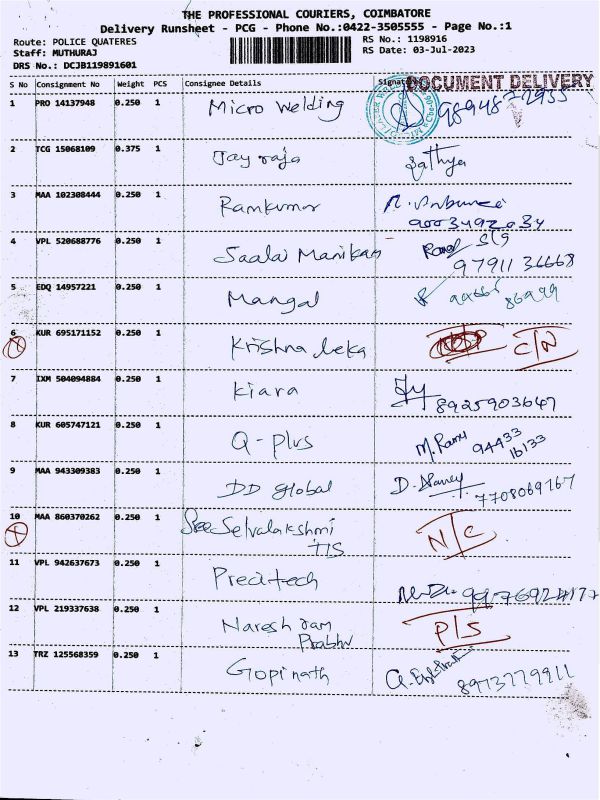 THE PROFESSIONAL COURIERS, COIMBATORE
Delivery Runsheet - PCG - Phone No.:0422-3505555 - Page No.:1
Route: POLICE QUATERES
RS No.: 1198916
Staff: MUTHURAJ
RS Date: 03-Jul-2023
DRS No.: DCJB119891601
S No Consignment No Weight PCS Consignee Details Signature
DOCUMENT DELIVERY
1 PRO 14137948 0.250 1 Micro Welding
2 TCG 15068109 0.375 1 Jay raja Sathya
3 MAA 102308444 0.250 1 Ramkumar
9003492034
4 VPL 520688776 0.250 1 Saalai Manikam
9791136668
5 EDQ 14957221 0.250 1 Mangal
6 KUR 695171152 0.250 1 Krishna leka C/N
7 IXM 504094884 0.250 1 Kiara
8925903647
8 KUR 605747121 0.250 1 Q-plus M. Ramu 94433
16133
9 MAA 943309383 0.250 1 DD global
7708069767
10 MAA 860370262 0.250 1 Sree Selvalakshmi N/C
11 VPL 942637673 0.250 1 Precitech
12 VPL 219337638 0.250 1 Naresh ram P/S
Prabhu
13 TRZ 125568359 0.250 1 Gopinath
8973779911